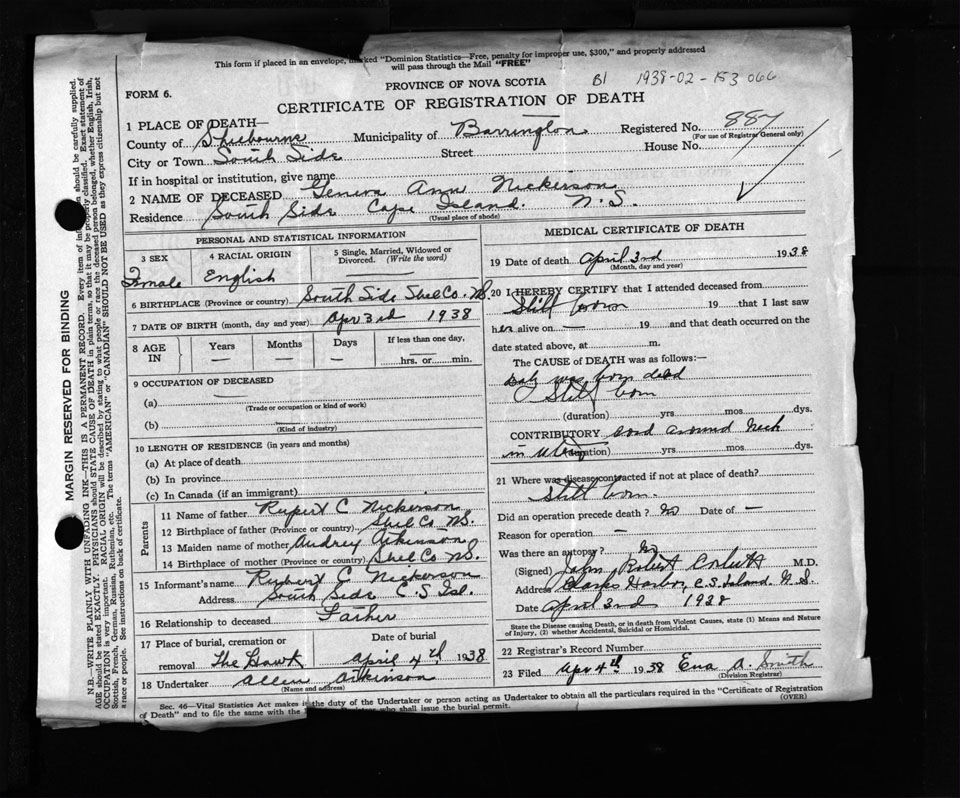 This form if placed in an envelope, marked "Dominion Statistics—Free, penalty for improper use, $300," and properly addressed
will pass through the Mail "FREE"
PROVINCE OF NOVA SCOTIA B1 1938-02-153066
FORM 6.
CERTIFICATE OF REGISTRATION OF DEATH
1 PLACE OF DEATH—
County of Shelburne Municipality of Barrington Registered No. 887
(For use of Registrar General only)
City or Town South Side Street House No.
If in hospital or institution, give name
2 NAME OF DECEASED Geneva Ann Nickerson
Residence South Side Cape Island. N.S.
(Usual place of abode)
PERSONAL AND STATISTICAL INFORMATION
3 SEX 4 RACIAL ORIGIN 5 Single, Married, Widowed or
Divorced. (Write the word)
Female English —
6 BIRTHPLACE (Province or country) South Side Shel Co. N.S.
7 DATE OF BIRTH (month, day and year) Apr 3rd 1938
8 AGE IN Years Months Days If less than one day,
— — — hrs. or min.
9 OCCUPATION OF DECEASED
(a) —
(Trade or occupation or kind of work)
(b)
(Kind of industry)
10 LENGTH OF RESIDENCE (in years and months)
(a) At place of death
(b) In province
(c) In Canada (if an immigrant)
Parents
11 Name of father Rupert C Nickerson
12 Birthplace of father (Province or country) Shel Co N.S.
13 Maiden name of mother Audrey Atkinson
14 Birthplace of mother (Province or country) Shel Co N.S.
15 Informant's name Rupert C Nickerson
Address South Side C.S. Isl.
16 Relationship to deceased Father
17 Place of burial, cremation or Date of burial
removal The Hawk April 4th 1938
18 Undertaker Allen Atkinson
(Name and address)
MEDICAL CERTIFICATE OF DEATH
19 Date of death April 3rd 1938
(Month, day and year)
20 I HEREBY CERTIFY that I attended deceased from
Still born 19 that I last saw
her alive on — 19 and that death occurred on the
date stated above, at m.
The CAUSE of DEATH was as follows:—
Baby was born dead
Still born
(duration) yrs mos dys.
CONTRIBUTORY cord around neck
in utero (duration) yrs mos dys.
21 Where was disease contracted if not at place of death?
Still born.
Did an operation precede death? No Date of —
Reason for operation —
Was there an autopsy? No
(Signed) John Robert M.D.
Address Clarks Harbor, C.S. Island. N.S.
Date April 3rd 1938
State the Disease causing Death, or in death from Violent Causes, state (1) Means and Nature
of Injury, (2) whether Accidental, Suicidal or Homicidal.
22 Registrar's Record Number
23 Filed Apr 4th 1938 Ena A. Smith
(Division Registrar)
Sec. 46—Vital Statistics Act makes it the duty of the Undertaker or person acting as Undertaker to obtain all the particulars required in the "Certificate of Registration
of Death" and to file the same with the who shall issue the burial permit. (OVER)
MARGIN RESERVED FOR BINDING
N.B.—WRITE PLAINLY WITH UNFADING INK—THIS IS A PERMANENT RECORD. Every item of should be carefully supplied.
AGE should be stated EXACTLY. PHYSICIANS should state CAUSE OF DEATH in plain terms, so that it may be properly classified. Exact statement of
OCCUPATION is very important. RACIAL ORIGIN will be described by stating to what people or race the deceased person belonged, whether English, Irish,
Scottish, French, German, Russian, Ruthenian, etc. The terms "AMERICAN" or "CANADIAN" SHOULD NOT BE USED as they express citizenship but not
a race or people. See instructions on back of certificate.